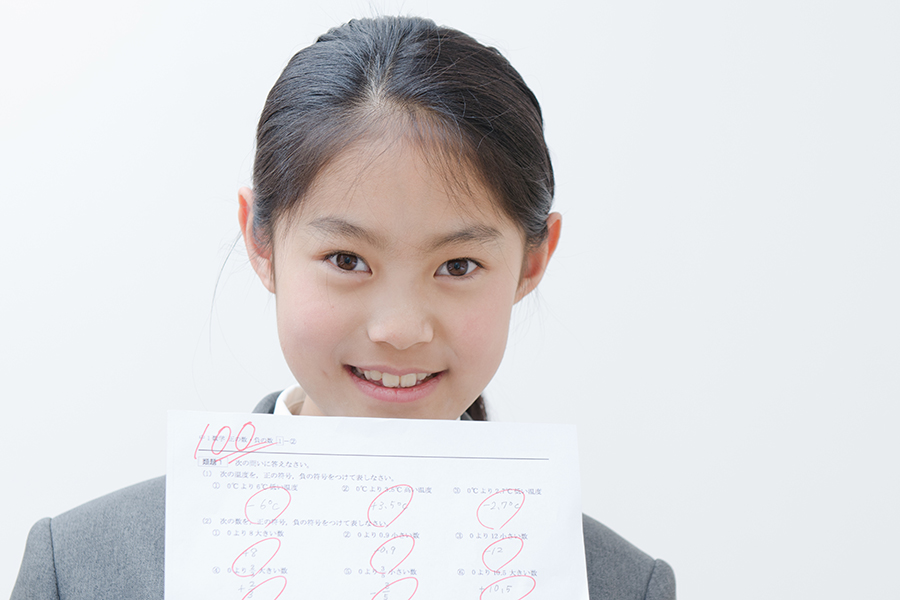 中1数学 正の数・負の数 1－②
100
類題1 次の問いに答えなさい。
(1) 次の温度を、正の符号、負の符号をつけて表しなさい。
① 0℃より6℃低い温度 ② 0℃より3.5℃高い温度 ③ 0℃より2.7℃低い温度
-6℃ +3.5℃ -2.7℃
(2) 次の数を、正の符号、負の符号をつけて表しなさい。
① 0より8大きい数 ② 0より0.9小さい数 ③ 0より12小さい数
+8 -0.9 -12
④ 0より2/3大きい数 ⑤ 0より3/5小さい数 ⑥ 0より10.5大きい数
+2/3 -3/5 +10.5